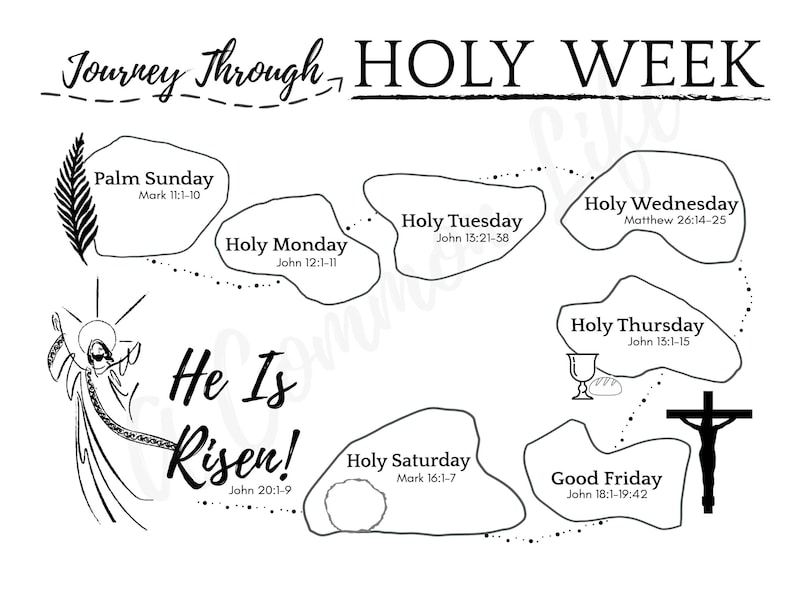 Journey Through HOLY WEEK
Palm Sunday
Mark 11:1-10
Holy Monday
John 12:1-11
Holy Tuesday
John 13:21-38
Holy Wednesday
Matthew 26:14-25
Holy Thursday
John 13:1-15
Good Friday
John 18:1-19:42
Holy Saturday
Mark 16:1-7
He Is
Risen!
John 20:1-9
A Common Life